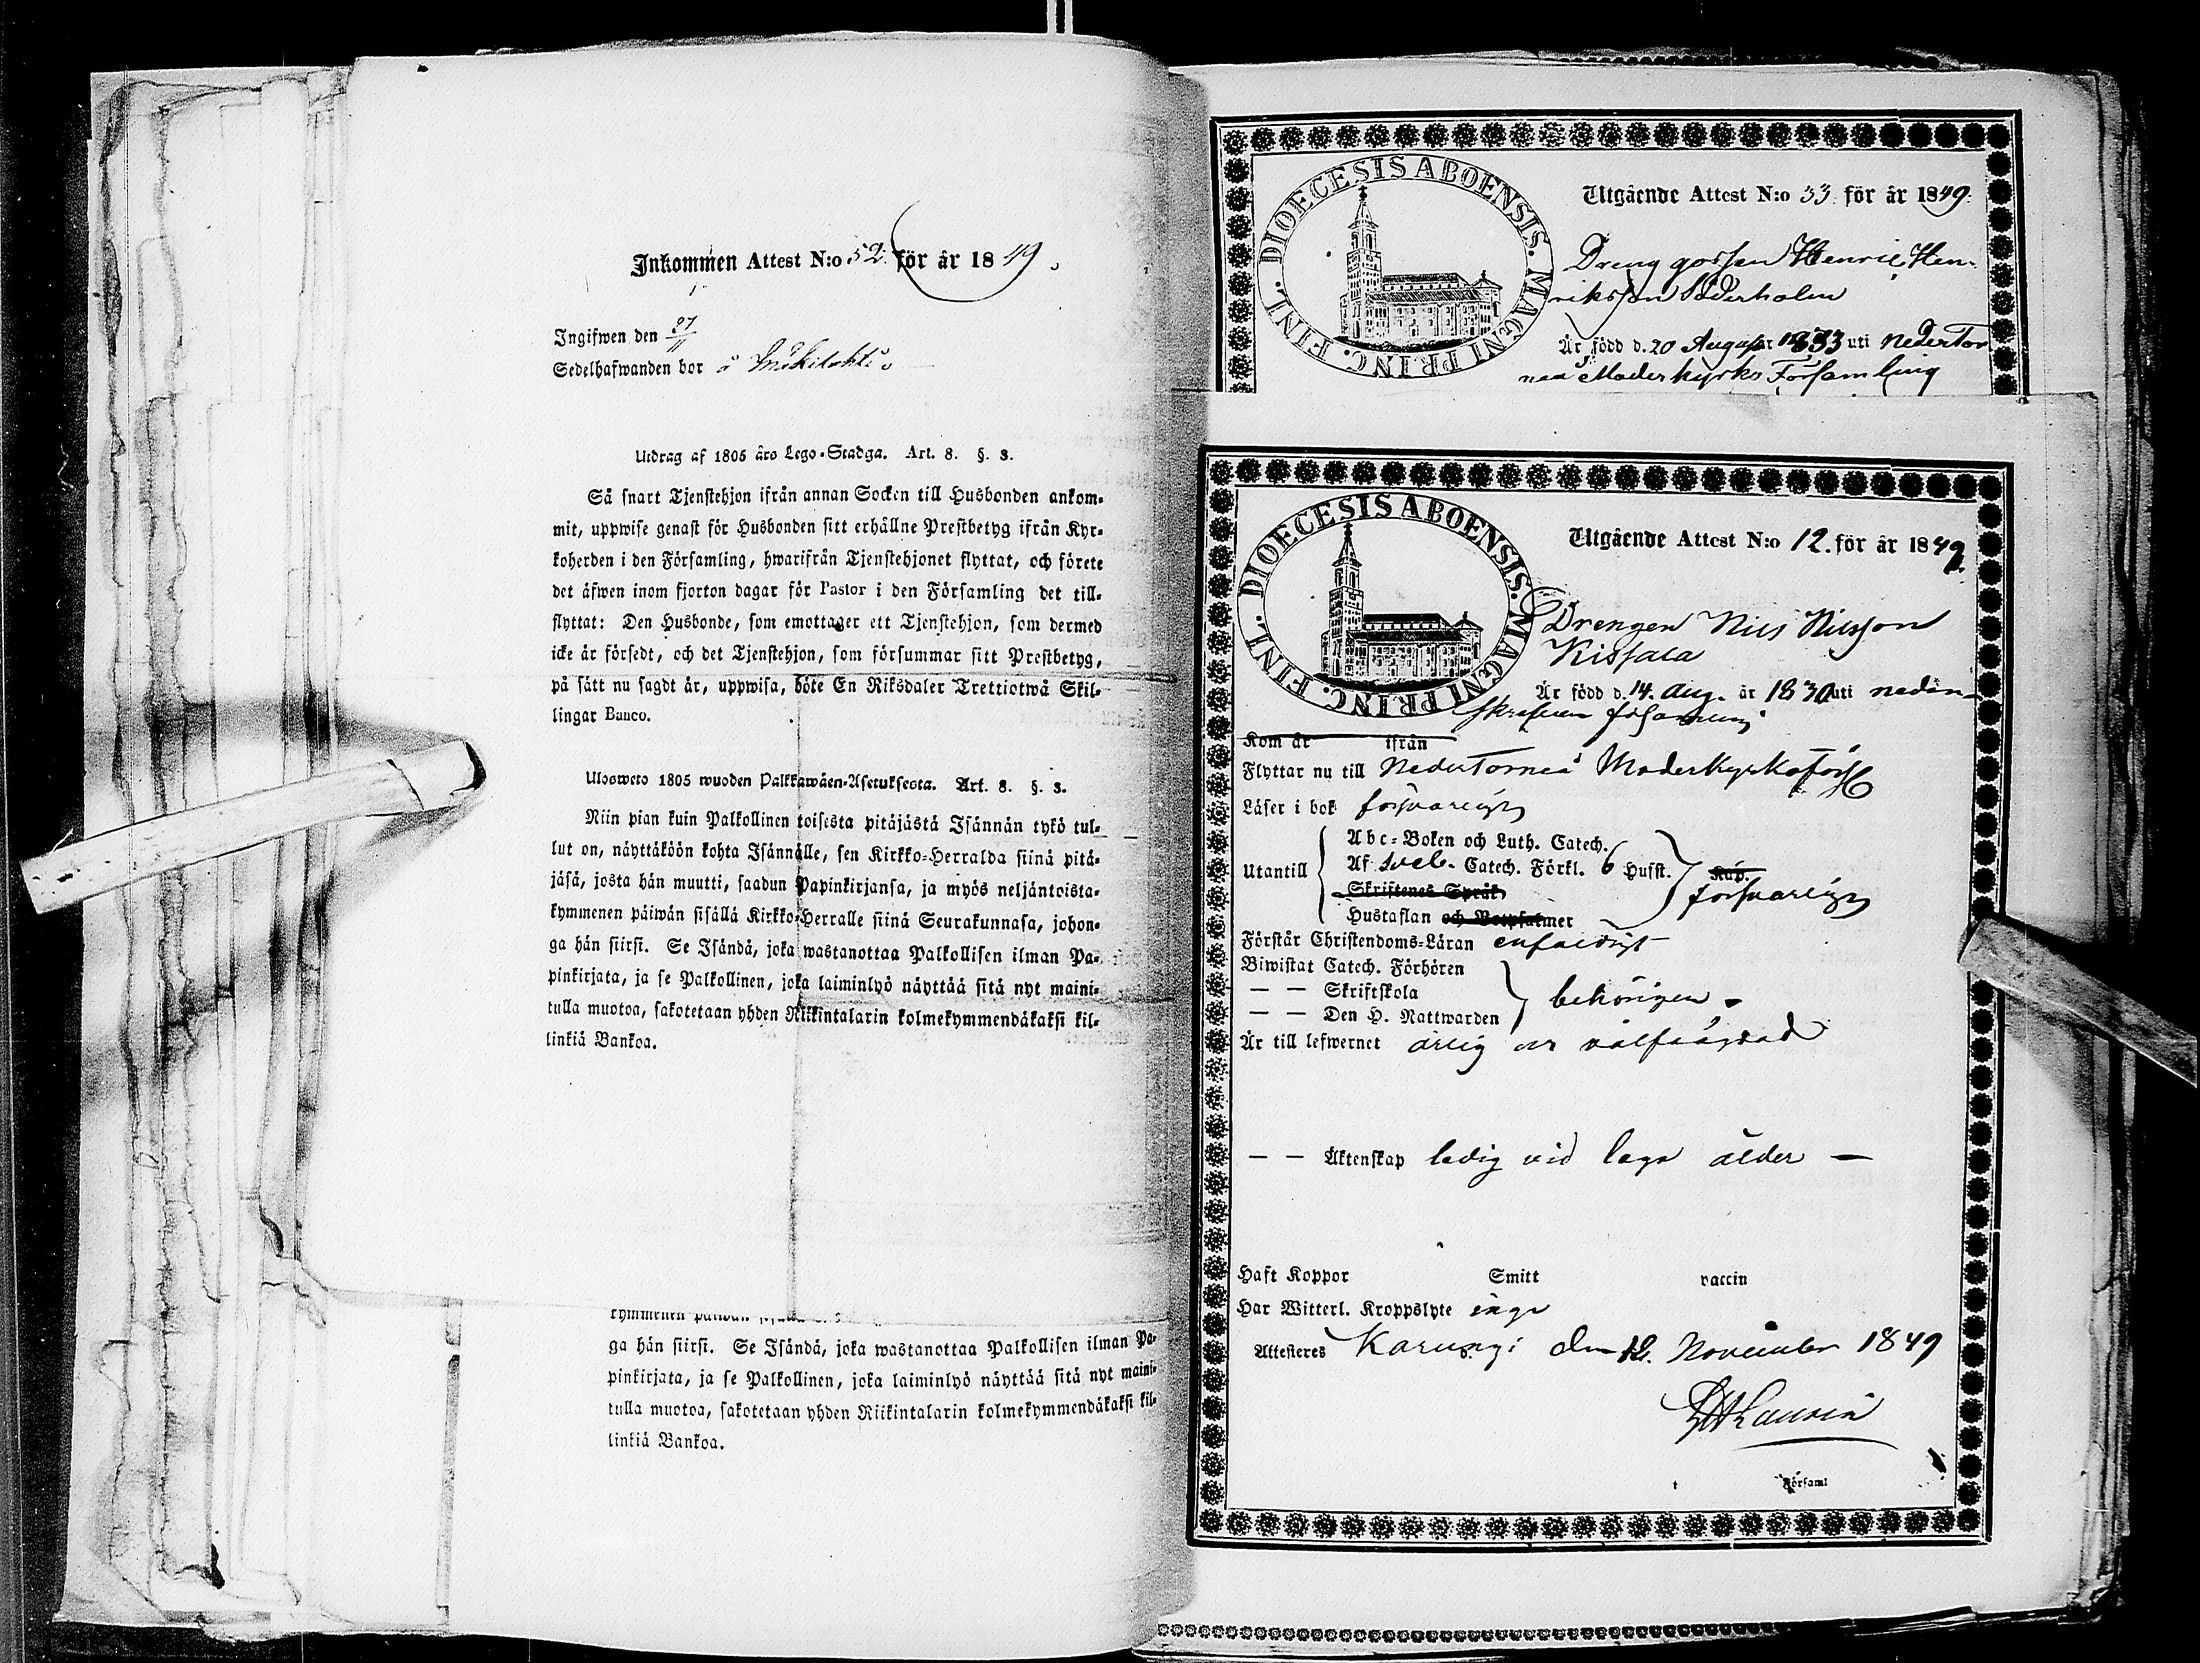 Inkommen Attest N:o 52. för år 1849.
Ingifwen den 27/11
Sedelhafwanden bor å
Utdrag af 1805 års Lego-Stadga. Art. 8. §. 3.
Så snart Tjenstehjon ifrån annan Socken till Husbonden ankom-
mit, uppwise genast för Husbonden sitt erhållne Prestbetyg ifrån Kyr-
koherden i den Församling, hwarifrån Tjenstehjonet flyttat, och förete
det äfwen inom fjorton dagar för Pastor i den Församling det till-
flyttat: Den Husbonde, som emottager ett Tjenstehjon, som dermed
icke är försedt, och det Tjenstehjon, som försummar sitt Prestbetyg,
på sätt nu sagdt är, uppwisa, böte En Riksdaler Trettiotwå Skil-
lingar Banco.
Ulosweto 1805 wuoden Palkkawäen-Asetuksesta. Art. 8. §. 3.
Niin pian kuin Palkollinen toisesta pitäjästä Isännän tykö tul-
lut on, näyttäköön kohta Isännälle, sen Kirkko-Herralda siinä pitä-
jäsä, josta hän muutti, saadun Papinkirjansa, ja myös neljäntoista-
kymmenen päiwän sisällä Kirkko-Herralle siinä Seurakunnasa, johon-
ga hän siirsi. Se Isändä, joka wastanottaa Palkollisen ilman Pa-
pinkirjata, ja se Palkollinen, joka laiminlyö näyttää sitä nyt maini-
tulla muotoa, sakotetaan yhden Riikintalarin kolmekymmendäkaksi kil-
linkiä Bankoa.
ga hän siirsi. Se Isändä, joka wastanottaa Palkollisen ilman Pa-
pinkirjata, ja se Palkollinen, joka laiminlyö näyttää sitä nyt maini-
tulla muotoa, sakotetaan yhden Riikintalarin kolmekymmendäkaksi kil-
linkiä Bankoa.
DIOECESIS ABOENSIS. MAGNI PRINC. FINL.
Utgående Attest N:o 33 för år 1849.
Dreng gossen Henric Hen-
riksson Söderholm
Är född d. 20 August 1833 uti Neder Tor
neå Moderkyrko Församling
DIOECESIS ABOENSIS. MAGNI PRINC. FINL.
Utgående Attest N:o 12. för år 1849.
Drengen Nils Nilsson
Kissala
Är född d. 14. Aug. år 1830 uti nedan-
skrefven församling
Kom år ifrån
Flyttar nu till NederTorneå Moderkyrkoförs
Läser i bok försvarligt
Abc-Boken och Luth. Catech.
Utantill Af Sveb. Catech. Förkl. 6 Hufst. Kap.
Skriftenes Språk försvarligt
Hustaflan och Botpsalmer
Förstår Christendoms-Läran enfaldigt
Biwistat Catech. Förhören
— — Skriftskola behörigen
— — Den H. Nattwarden
Är till lefwernet ärlig och välfrägdad
— — Äktenskap ledig vid laga ålder —
Haft Koppor Smitt vaccin
Har Witterl. Kroppslyte inga
Attesteres Karungi den 12. November 1849
Församl